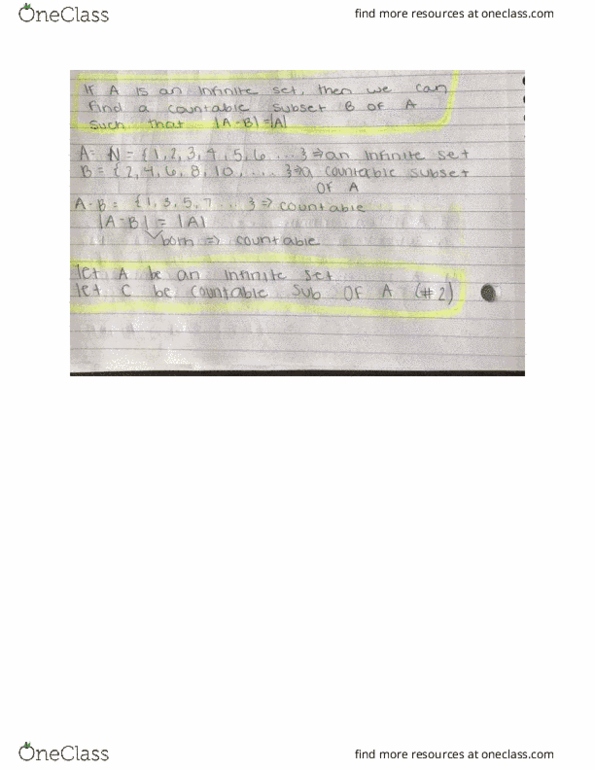 OneClass
find more resources at oneclass.com
If A is an infinite set, then we can
find a countable subset B of A
such that |A-B|=|A|
A= N = {1,2,3,4,5,6 ...} ⇒ an infinite set
B = {2,4,6,8,10, ....} ⇒ a countable subset
OF A
A-B = {1,3,5,7 ...} ⇒ countable
|A-B| = |A|
both ⇒ countable
let A be an infinite set
let C be countable sub OF A (#2)
OneClass
find more resources at oneclass.com